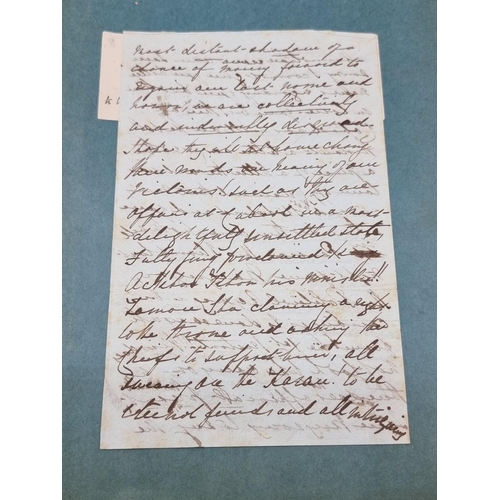 most distant shadow of a
chance of moving forward to
regain our lost name and
honor, we are collectively
and individually disgraced.
I hope they will at home change
their minds on hearing of our
Victories! such as they are
affairs as of about in a most
delightfully unsettled state,
Futty Jung proclaimed King
his Minister!!
claiming a right
to the Throne and asking the
Chiefs to support him, all
swearing on the Koran to be
eternal friends and all intriguing
k